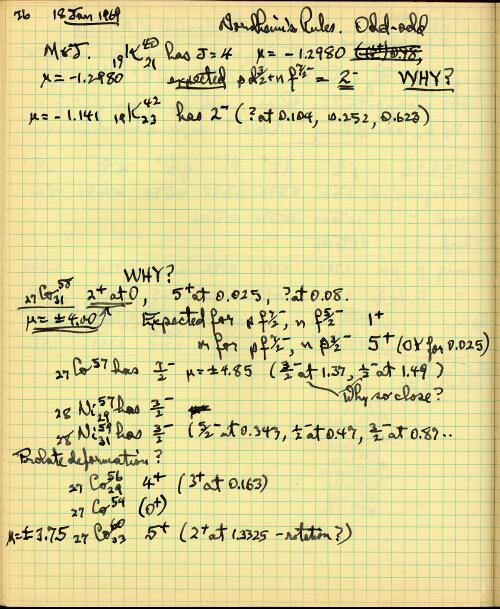 76 18 Jan 1969 Nordheim's Rules. Odd-odd
M&J. ₁₉K⁴⁰₂₁ has J=4 μ = -1.2980
μ = -1.2980 expected p d3/2 + n f 7/2⁻ = 2⁻ WHY?
μ = -1.141 ₁₉K⁴²₂₃ has 2⁻ (? at 0.104, 0.252, 0.623)
WHY?
₂₇Co⁵⁸₃₁ 2⁺ at 0, 5⁺ at 0.025, ? at 0.08.
μ = ±4.00 Expected for p f 7/2⁻, n f 5/2⁻ 1⁺
or for p f 7/2⁻, n p 3/2⁻ 5⁺ (OK for 0.025)
₂₇Co⁵⁷ has 7/2⁻ μ = ±4.85 (3/2⁻ at 1.37, 1/2⁻ at 1.49)
Why so close?
₂₈Ni⁵⁷₂₉ has 3/2⁻
₂₈Ni⁵⁹₃₁ has 3/2⁻ (5/2⁻ at 0.343, 1/2⁻ at 0.47, 3/2⁻ at 0.89..
Prolate deformation?
₂₇Co⁵⁶₂₉ 4⁺ (3⁺ at 0.163)
₂₇Co⁵⁴ (0⁺)
μ = ±3.75 ₂₇Co⁶⁰₃₃ 5⁺ (2⁺ at 1.3325 - rotation?)